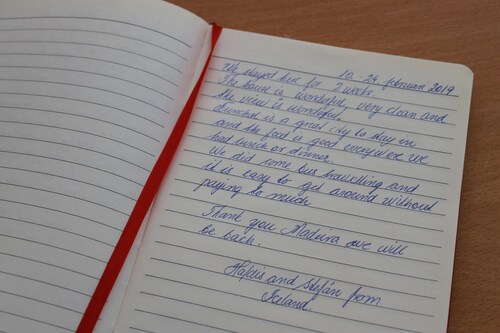 10. - 24 februar 2019
We stayed here for 2 weeks.
The house is wonderful, very clean and
the view is wonderful.
Funchal is a great city to stay in
and the food is good everywere we
had lunch or dinner.
We did some bus travelling and
it is easy to get around without
paying to much.
Thank you Madeira we will
be back.
and Stefán from
Iceland.